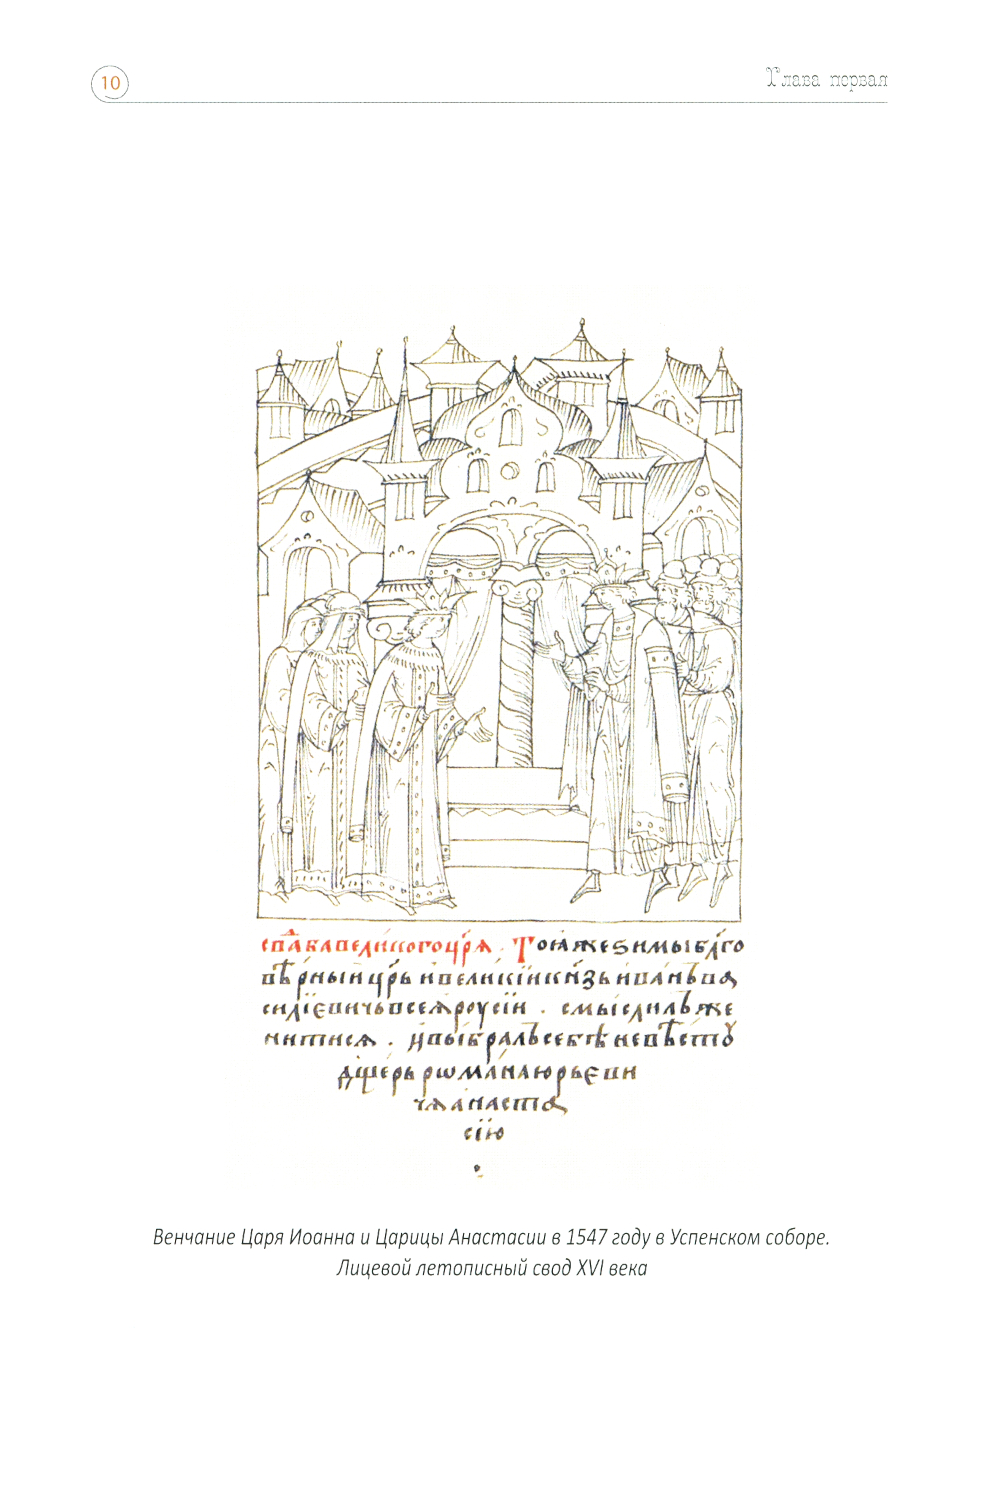 10
Глава первая
свадьба великого цр҃я . Тоя же зимы бл҃го
вѣрный цр҃ь и великїи кн҃зь иванъ ва
силїевичь всея роусїи . смыслилъ же
нитися . и выбралъ себѣ невѣстоу
дщерь рѡмана юрьеви
чя анаста
сїю
.
Венчание Царя Иоанна и Царицы Анастасии в 1547 году в Успенском соборе.
Лицевой летописный свод XVI века